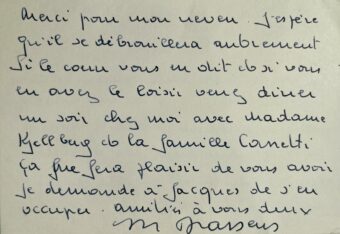 Merci pour mon neveu. J'espère
qu'il se débrouillera autrement
Si le cœur vous en dit et si vous
en avez le loisir venez diner
un soir chez moi avec madame
Kjellberg et la famille
ça me fera plaisir de vous avoir
je demande à Jacques de s'en
occuper. amitiés à vous deux
M